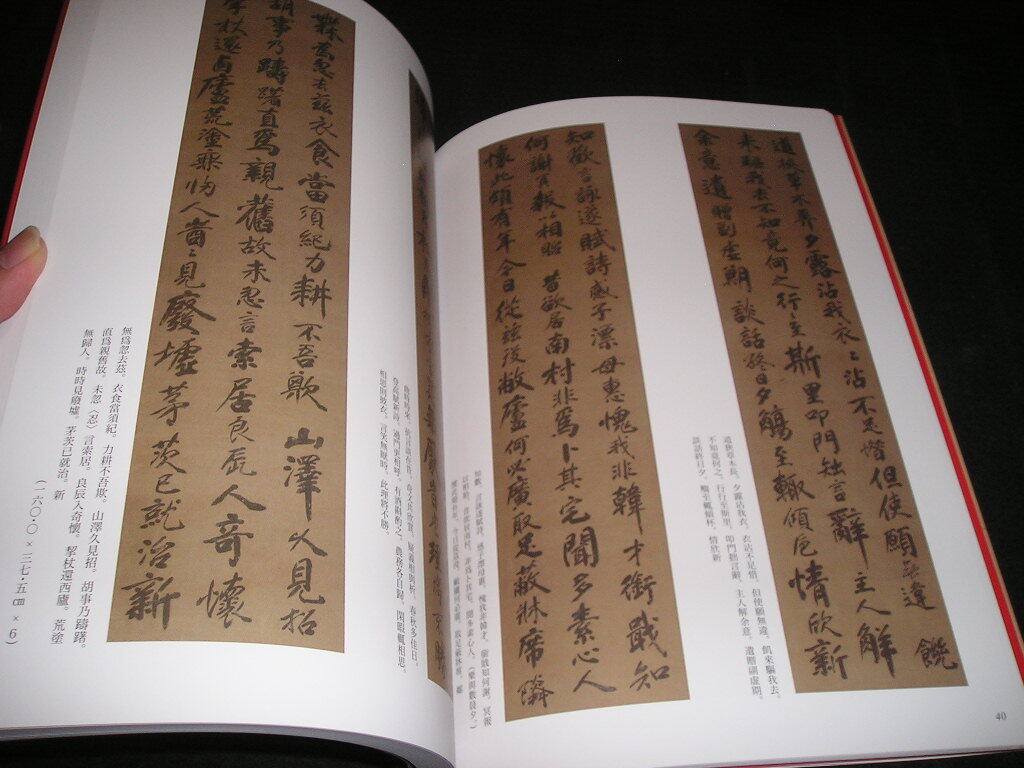 道狹草木長夕露沾我衣〻沾不足惜但使願無違饑
來驅我去不知竟何之行〻至斯里叩門拙言辭主人解
余意遺贈副虛期談話終日夕觴至輒傾卮情欣新
道狹草木長。夕露沾我衣。衣沾不足惜。但使願無違。飢來驅我去。
不知竟何之。行行至斯里。叩門拙言辭。主人解余意。遺贈副虛期。
談話終日夕。觴至輒傾杯。情欣新
知歡言詠遂賦詩感子漂母惠愧我非韓才銜戢知
何謝冥報以相貽昔欲居南村非爲卜其宅聞多素心人
懷此頗有年今日從茲役敝廬何必廣取足蔽牀席隣
知歡。言詠遂賦詩。感子漂母惠。愧我非韓才。銜戢知何謝。冥報
以相貽。昔欲居南村。非爲卜其宅。聞多素心人。（樂與數晨夕。）
懷此頗有年。今日從茲役。敝廬何必廣。取足蔽牀席。鄰
40
曲時時來。抗言談在昔。奇文共欣賞。疑義相與析。春秋多佳日。
登高賦新詩。過門更相呼。有酒斟酌之。農務各自歸。閑暇輒相思。
相思則披衣。言笑無厭時。此理將不勝。
無爲忽去茲衣食當須紀力耕不吾欺山澤久見招
胡事乃躊躇直爲親舊故未忍言索居良辰人奇懷
挈杖還西廬荒塗無歸人時〻見廢墟茅茨已就治新
無爲忽去茲。衣食當須紀。力耕不吾欺。山澤久見招。胡事乃躊躇。
直爲親舊故。未忽〈忍〉言索居。良辰入奇懷。挈杖還西廬。荒塗
無歸人。時時見廢墟。茅茨已就治。新
（一六〇・〇×三七・五㎝×6）